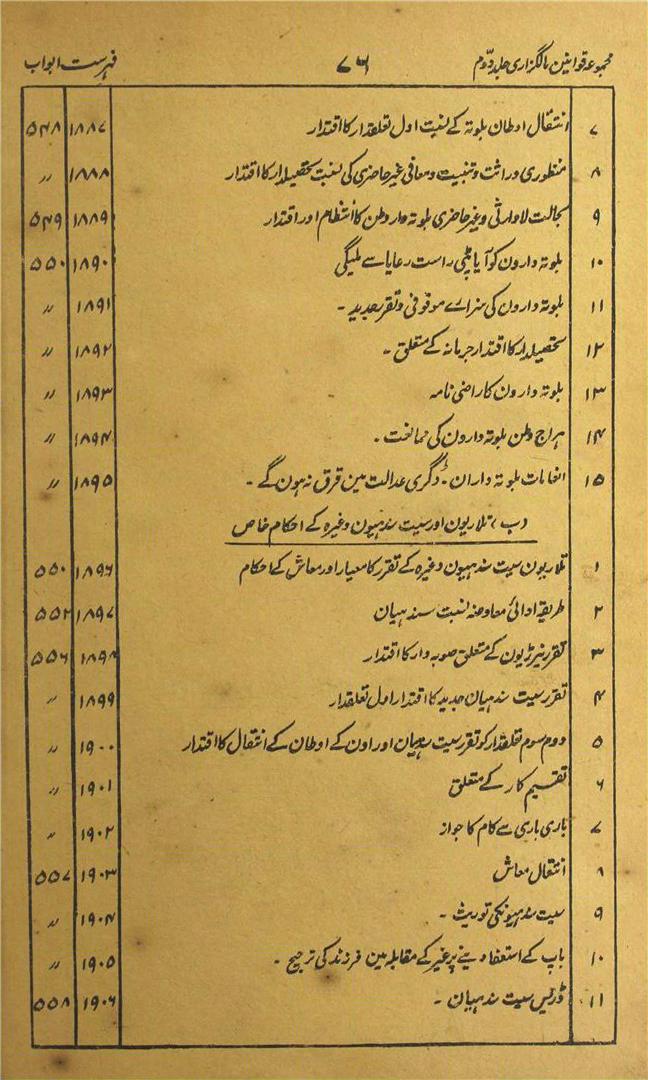 مجموعہ قوانین مالگزاری جلد دوم ۷۶ فہرست ابواب
۷ انتقال اوطان بلوتہ کے نسبت اول تعلقدار کا اقتدار ۱۸۸۷ ۵۴۸
۸ منظوری وراثت و تبنیت و معافی غیر حاضری کی نسبت تحصیلدار کا اقتدار ۱۸۸۸ 〃
۹ بحالت لاوارثی و غیر حاضری بلوتہ دار وطن کا انتظام اور اقتدار ۱۸۸۹ ۵۴۹
۱۰ بلوتہ دارون کو آیا پٹی راست رعایا سے ملیگی ۱۸۹۰ ۵۵۰
۱۱ بلوتہ دارون کی سزاے موقوفی و تقرر جدید ۔ ۱۸۹۱ 〃
۱۲ تحصیلدار کا اقتدار جرمانہ کے متعلق ۔ ۱۸۹۲ 〃
۱۳ بلوتہ دارون کا راضی نامہ ۱۸۹۳ 〃
۱۴ ہراج وطن بلوتہ دارون کی ممانعت ۔ ۱۸۹۴ 〃
۱۵ انعامات بلوتہ داران ۔ ڈگری عدالت مین قرق نہ ہون گے ۔ ۱۸۹۵ 〃
(ب) تلاریون اور سیت سندہیون وغیرہ کے احکام خاص
۱ تلاریون سیت سندہیون وغیرہ کے تقرر کا معیار اور معاش کے احکام ۱۸۹۶ ۵۵۰
۲ طریقہ ادائی معاوضہ نسبت سندہیان ۱۸۹۷ ۵۵۲
۳ تقرر نیرڑیون کے متعلق صوبہ دار کا اقتدار ۱۸۹۸ ۵۵۶
۴ تقرر سیت سندہیان جدید کا اقتدار اول تعلقدار ۱۸۹۹ 〃
۵ دوم سوم تعلقدار کو تقرر سیت سندہیان اور اون کے اوطان کے انتقال کا اقتدار ۱۹۰۰ 〃
۶ تقسیم کار کے متعلق ۱۹۰۱ 〃
۷ باری باری سے کام کا جواز ۱۹۰۲ 〃
۸ انتقال معاش ۱۹۰۳ ۵۵۷
۹ سیت سندہیونکی توریث ۔ ۱۹۰۴ 〃
۱۰ باپ کے استعفا دینے پر غیر کے مقابلہ مین فرزند کی ترجیح ۔ ۱۹۰۵ 〃
۱۱ ڈریس سیت سندہیان ۔ ۱۹۰۶ ۵۵۸